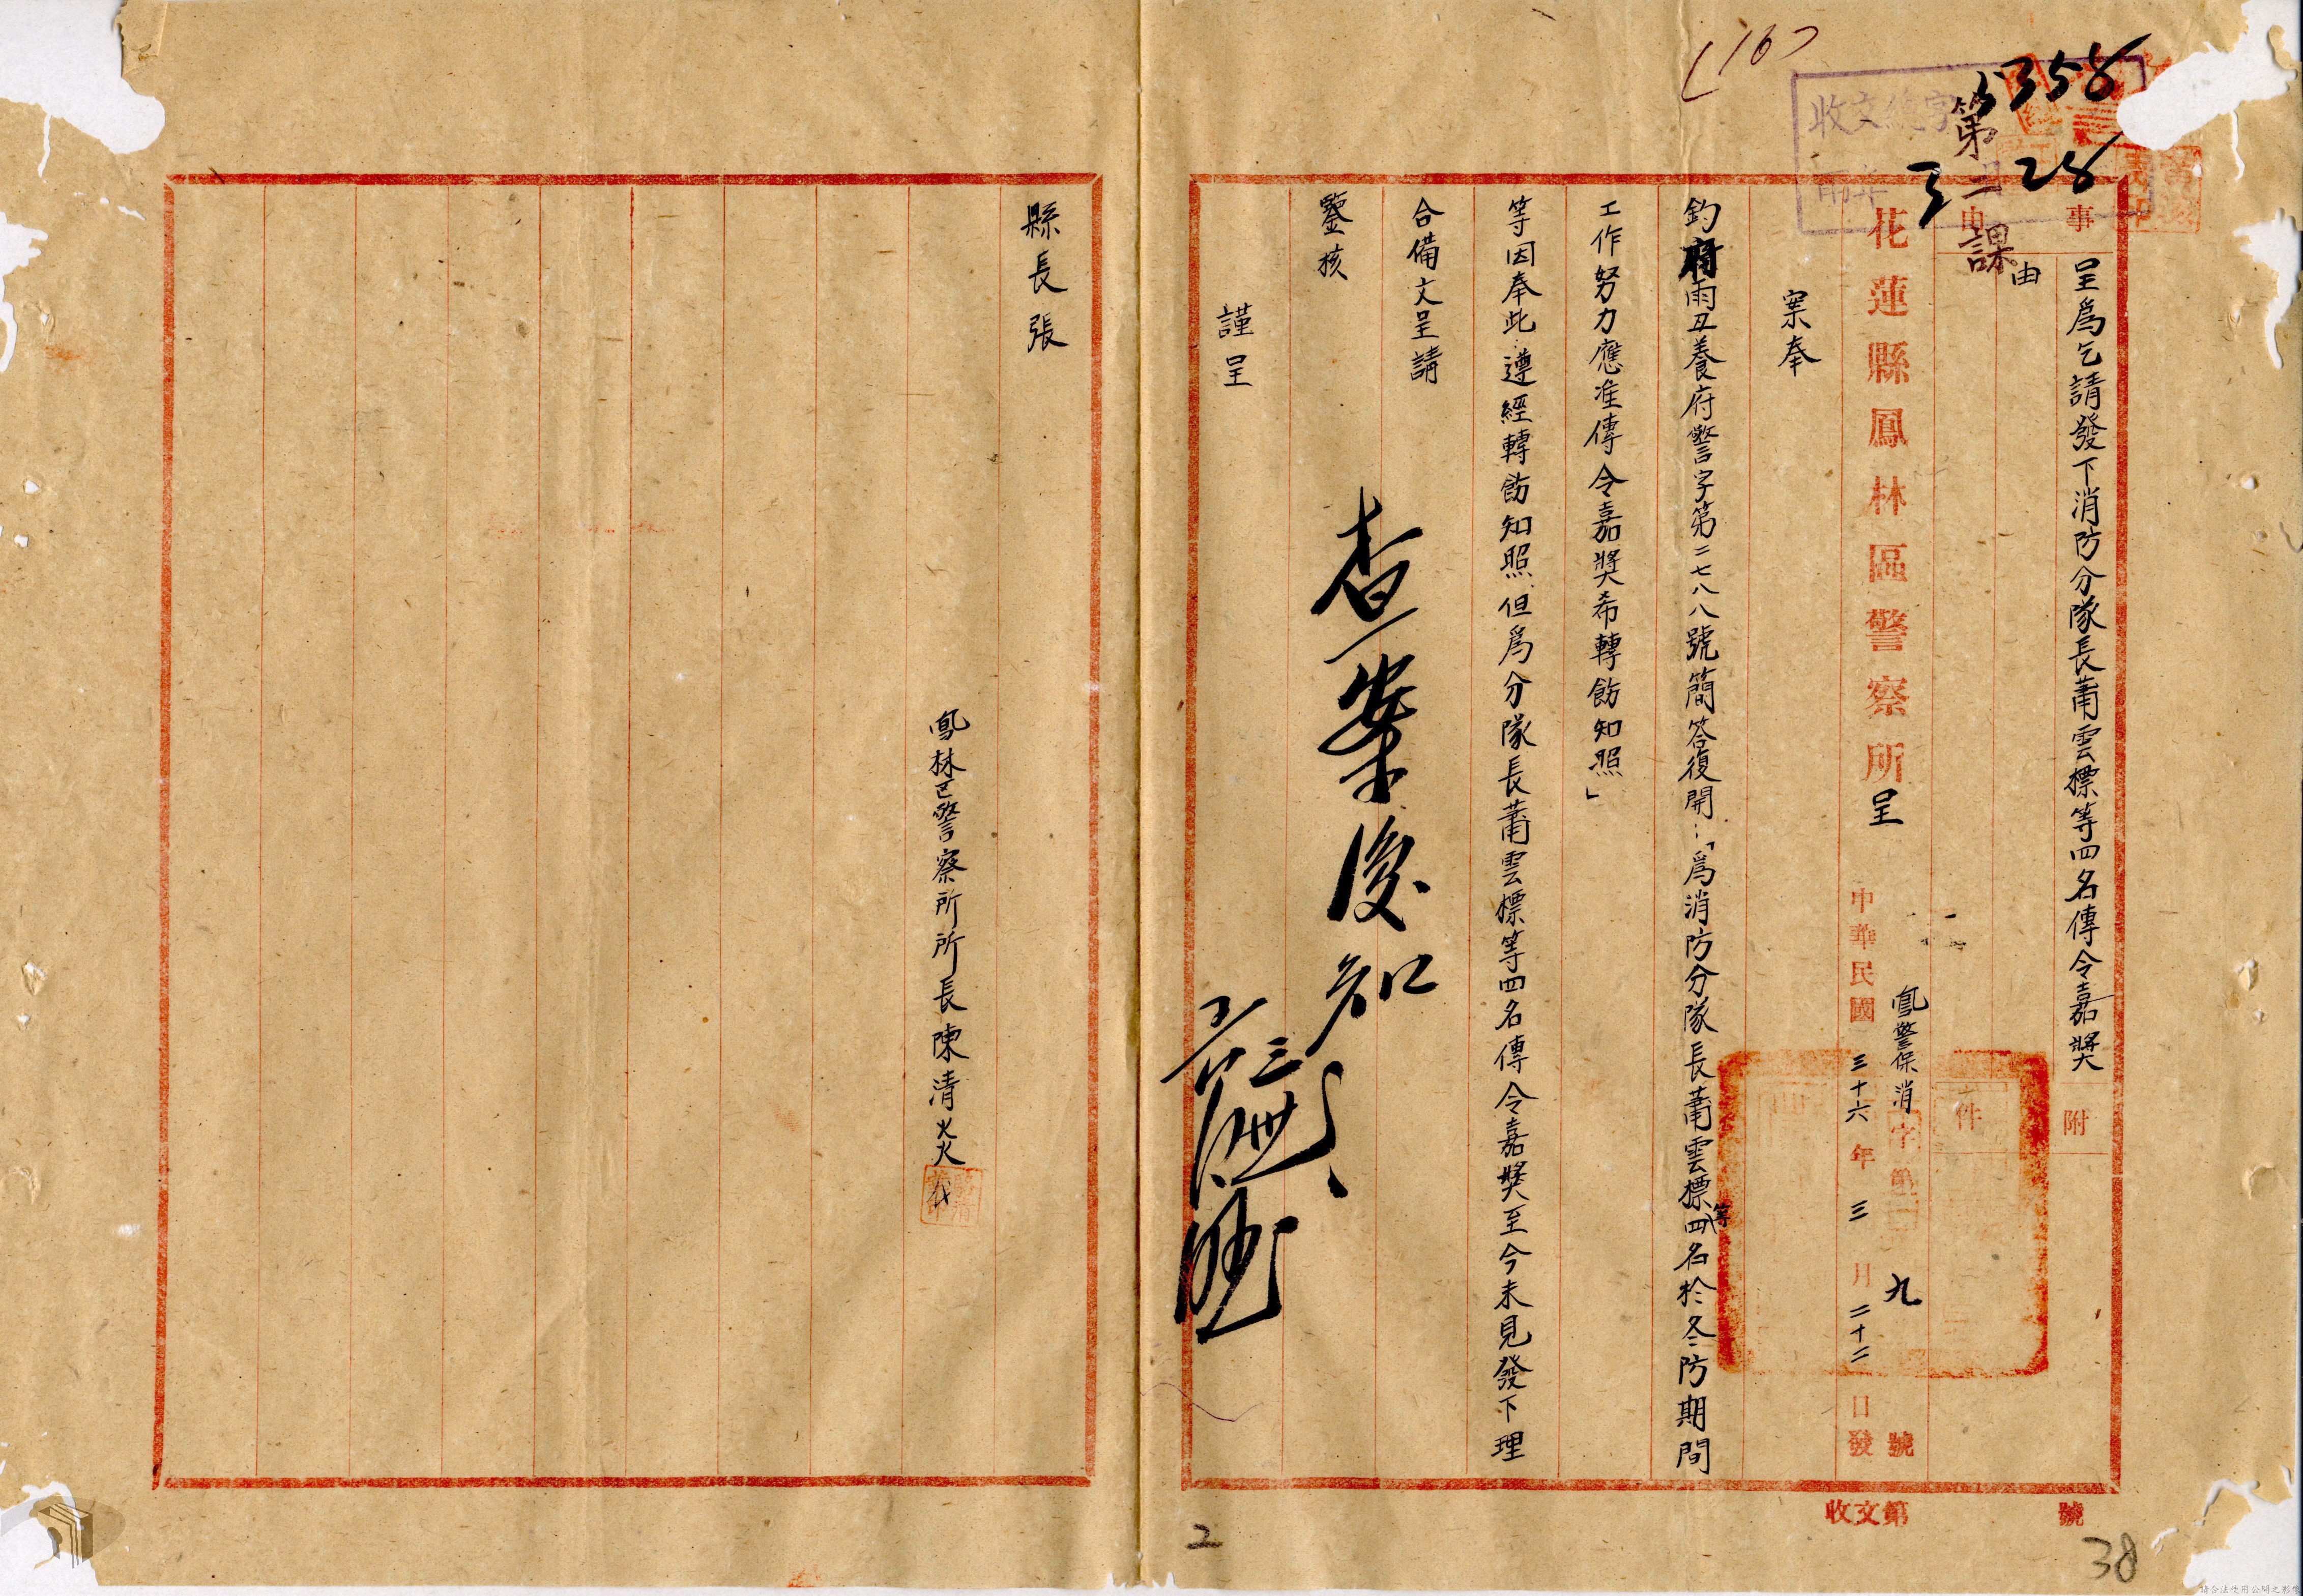 (16)
收文總字
5358
第二課
3 28
事
由
呈爲乞請發下消防分隊長蕭雲標等四名傳令嘉獎
由
附
件
花蓮縣鳳林區警察所呈
鳳警保消字第九號
中華民國三十六年三月二十二日發
案奉
鈞府雨丑養府警字第二七八八號簡答復開：「爲消防分隊長蕭雲標等四名於冬防期間
工作努力應准傳令嘉獎希轉飭知照」
等因奉此遵經轉飭知照但爲分隊長蕭雲標等四名傳令嘉獎至今未見發下理
合備文呈請
鑒核
謹呈
查案後知
縣長張
鳳林区警察所所長陳清炎
代
收文第
號
2
38
請合法使用公開之影像